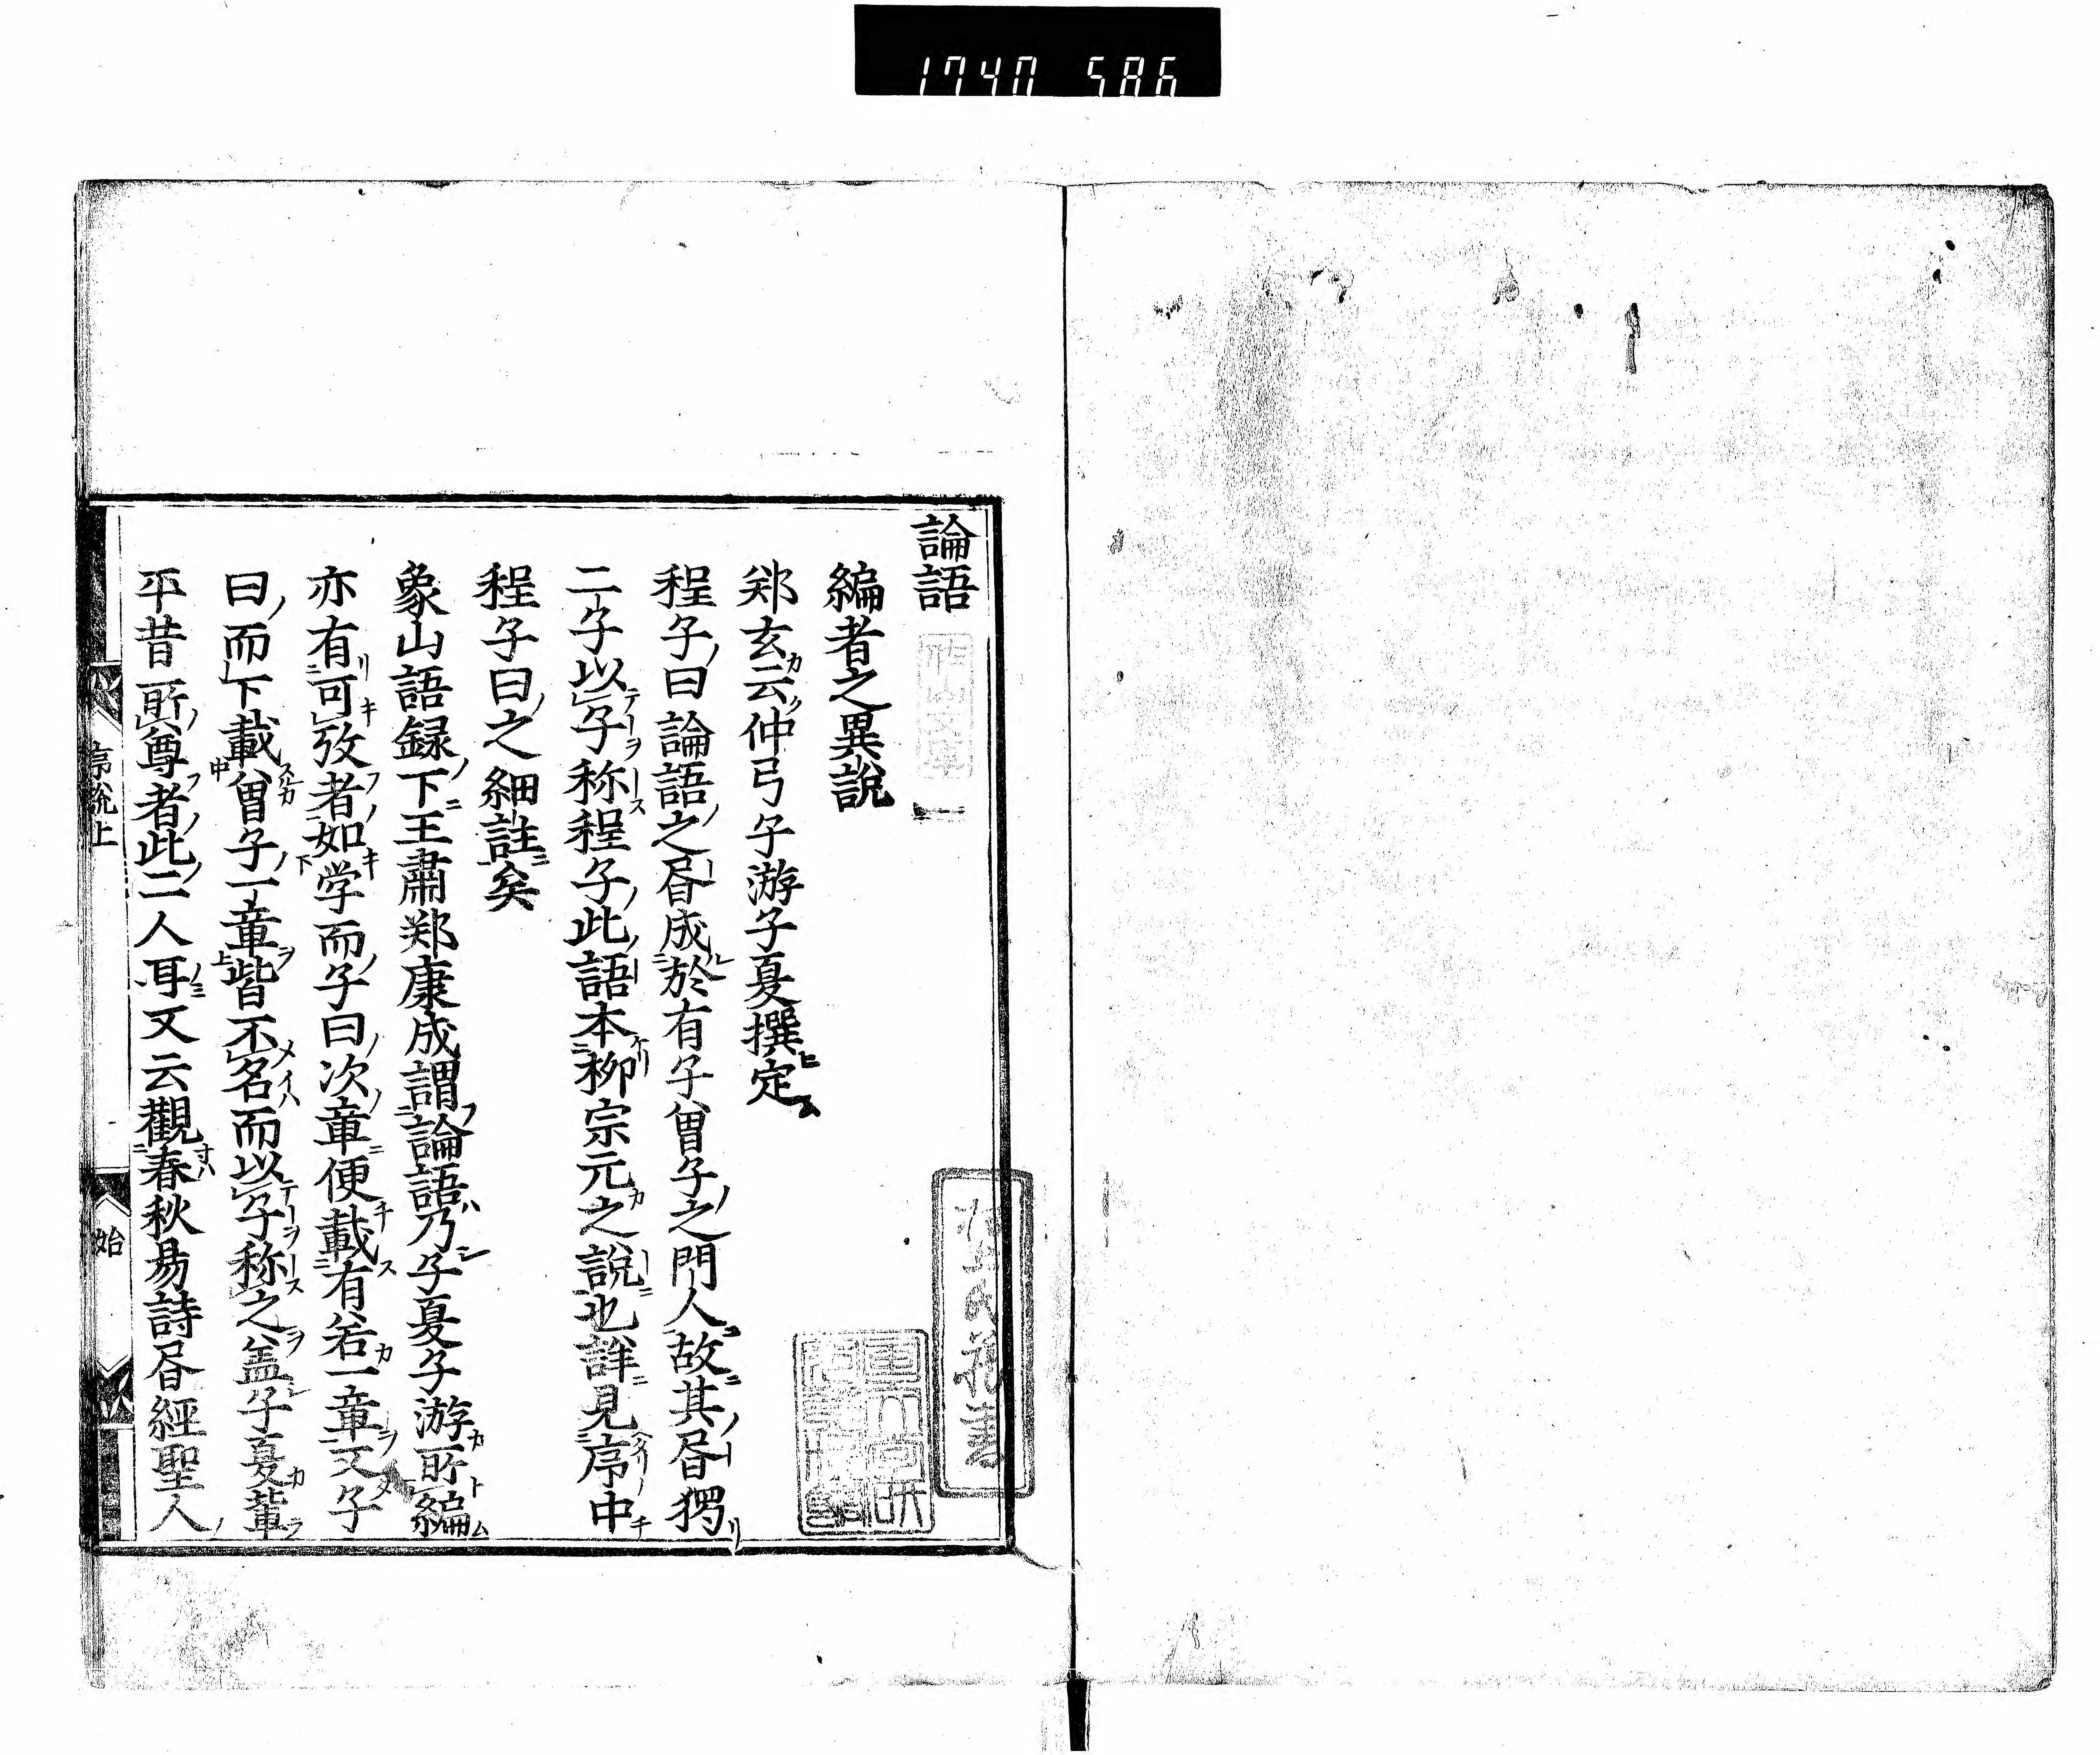 1740 586
論語
編者之異說
郑玄云仲弓子游子夏撰定
程子曰論語之昏成於有子曽子之門人故其昏獨
二子以子称程子此語本柳宗元之説也詳見序中
程子曰之細註矣
象山語録下王肅郑康成謂論語乃子夏子游所編
亦有可攷者如学而子曰次章便載有若一章又子
曰而下載曽子一章皆不名而以子称之盖子夏輩
平昔所尊者此二人耳又云觀春秋易詩昏經聖人
序説上
始